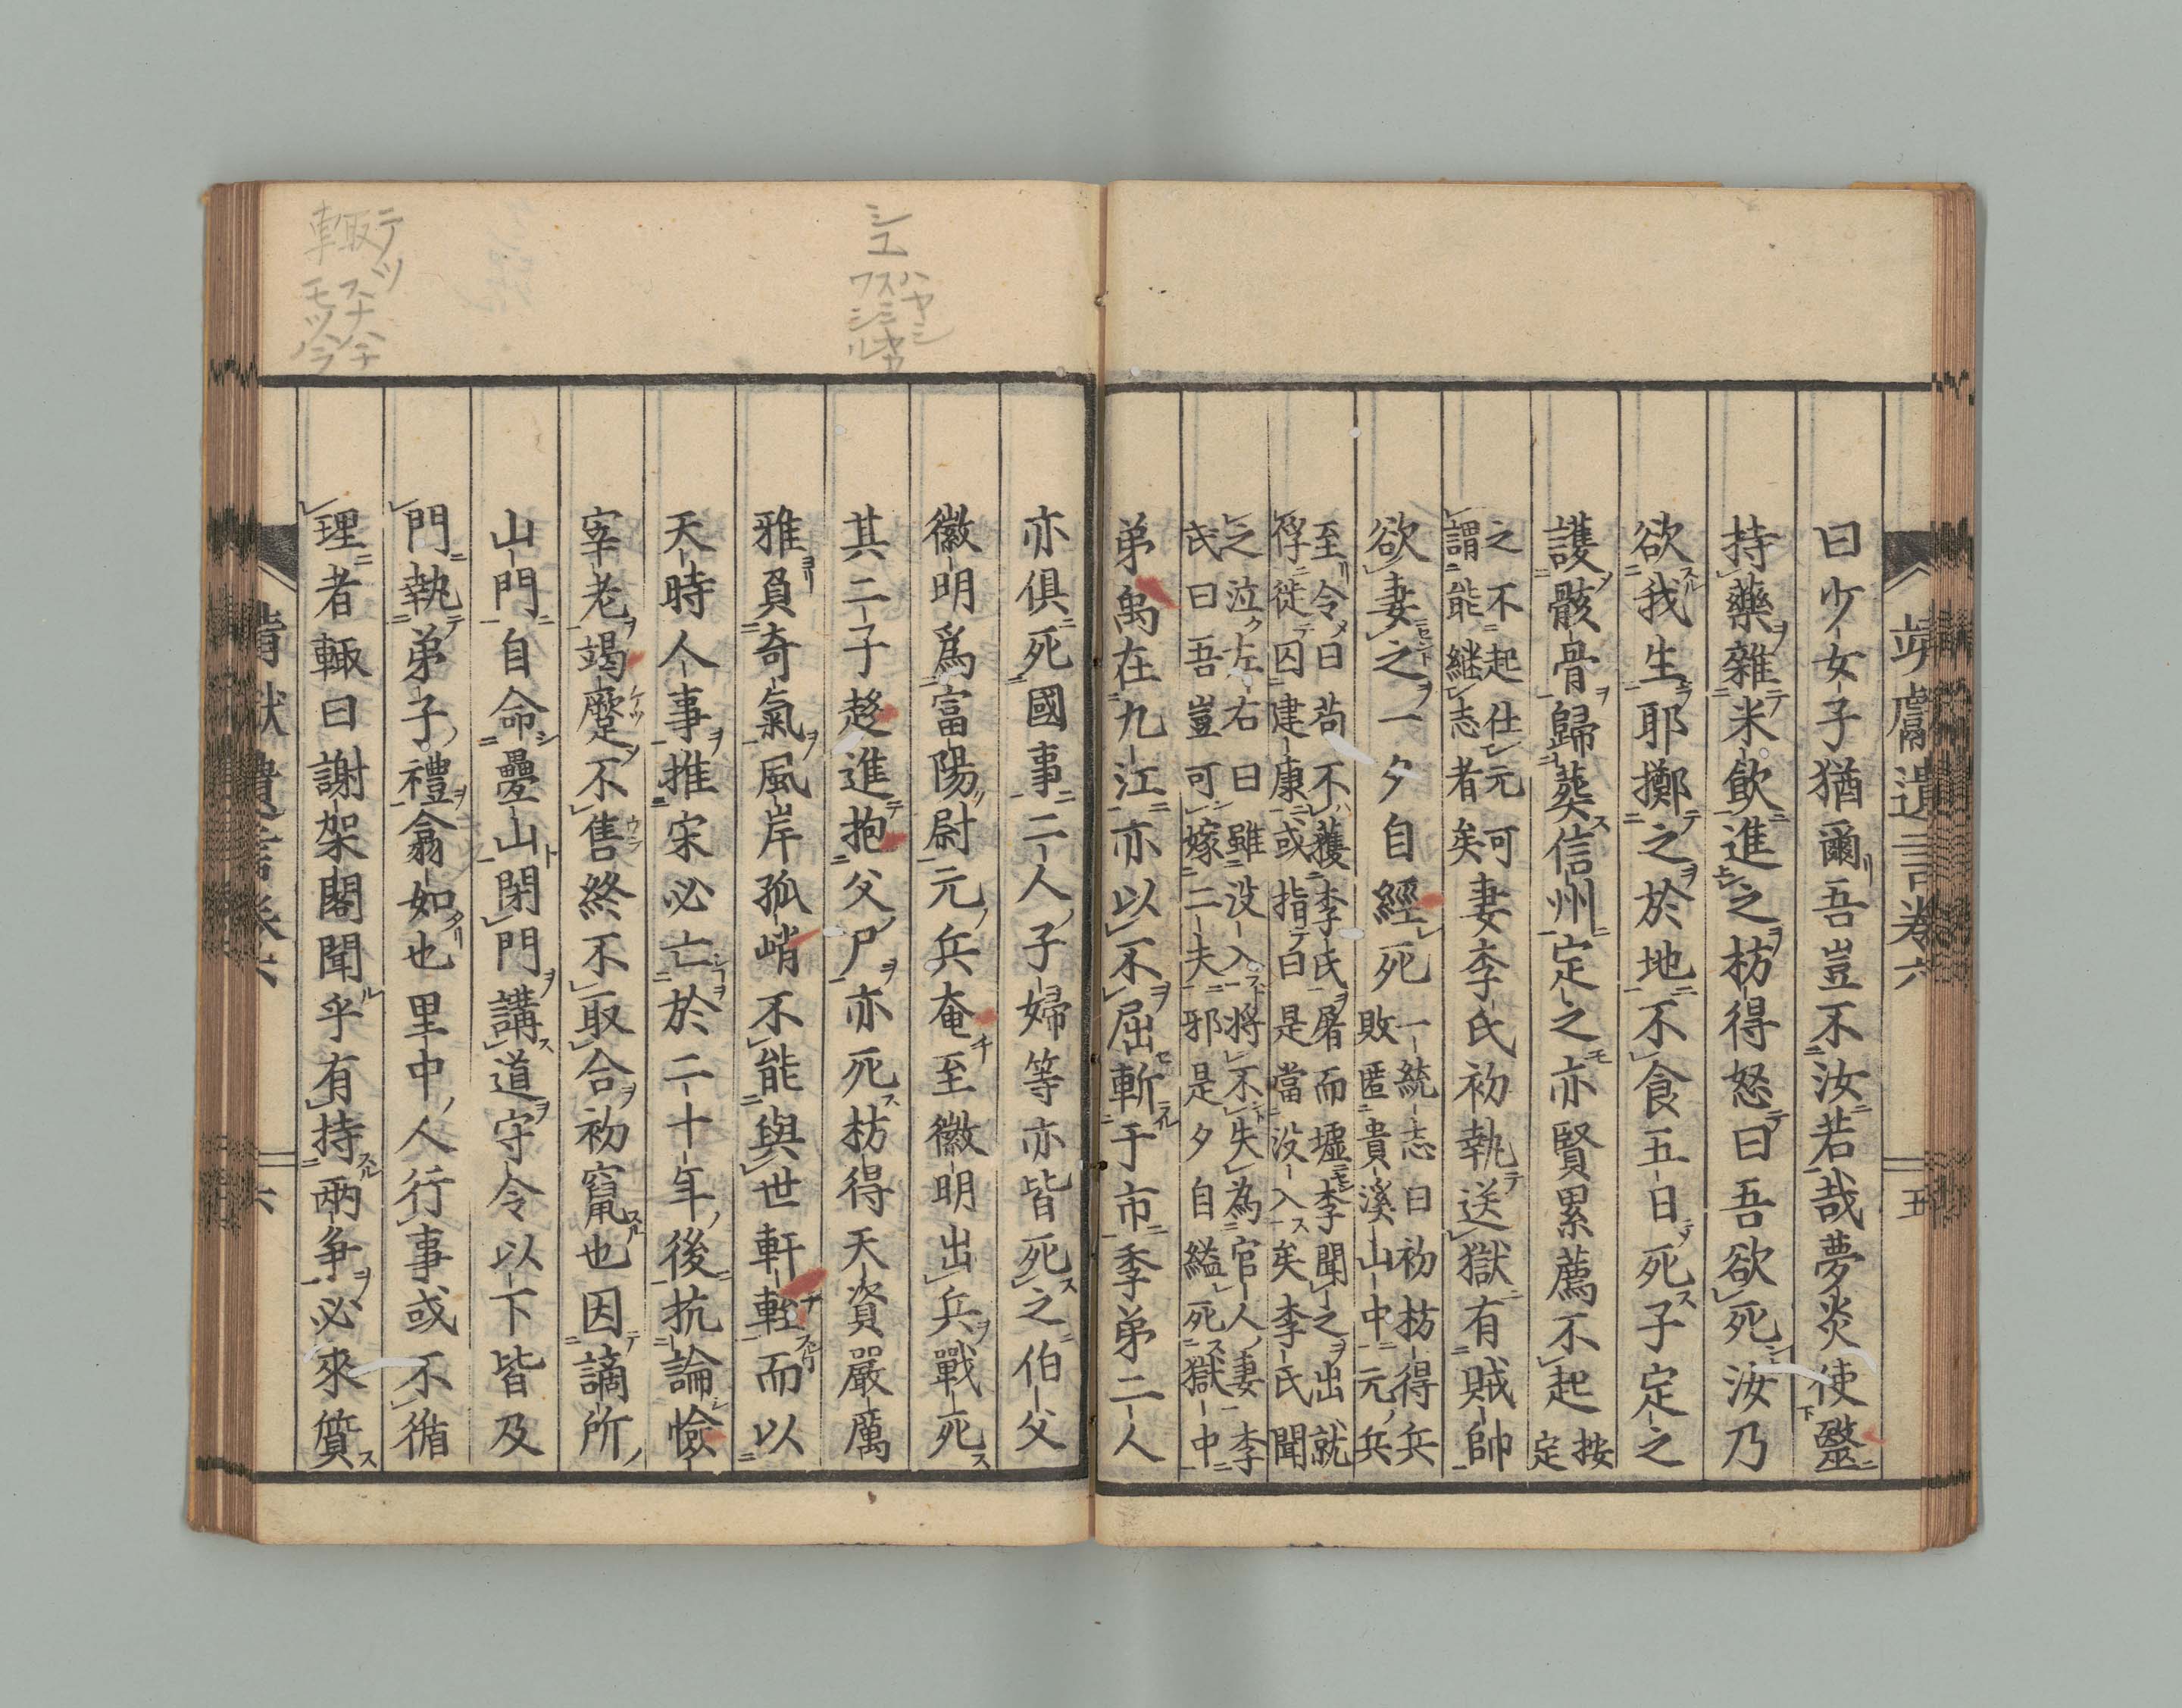 靖獻遺言卷六
五
曰少女子猶爾吾豈不汝若哉夢炎使毉
持藥雜米飲進之枋得怒曰吾欲死汝乃
欲我生耶擲之於地不食五日死子定之
護骸骨歸葬信州定之亦賢累薦不起按定
之不起仕元可
謂能継志者矣妻李氏初執送獄有賊帥
欲妻之一夕自經死一統志曰初枋得兵
敗匿貴溪山中元兵
至令曰苟不獲李氏屠而墟李聞之出就
俘徙囚建康或指曰是當没入矣李氏聞
之泣左右曰雖没入將不失為官人妻李
氏曰吾豈可嫁二夫邪是夕自縊死獄中
弟禹在九江亦以不屈斬于市季弟二人
亦俱死國事二人子婦等亦皆死之伯父
徽明爲富陽尉元兵奄至徽明出兵戰死
其二子趍進抱父尸亦死枋得天資嚴厲
雅負奇氣風岸孤峭不能與世軒輊而以
天時人事推宋必亡於二十年後抗論憸
宰老竭蹷不售終不取合初竄也因謫所
山門自命疊山閉門講道守令以下皆及
門執弟子禮翕如也里中人行事或不循
理者輙曰謝架閣聞乎有持兩争必來質
シユ
ハヤシ
スミヤカ
ワシル
テツ
輙
スナハチ
モツハラ